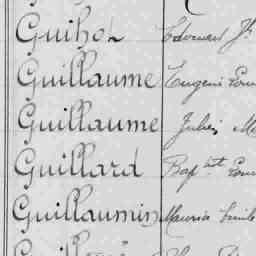 Guihol Edouard Jh
Guillaume Eugène
Guillaume Julien
Guillard Bapste
Guillaumin Maurice Emile